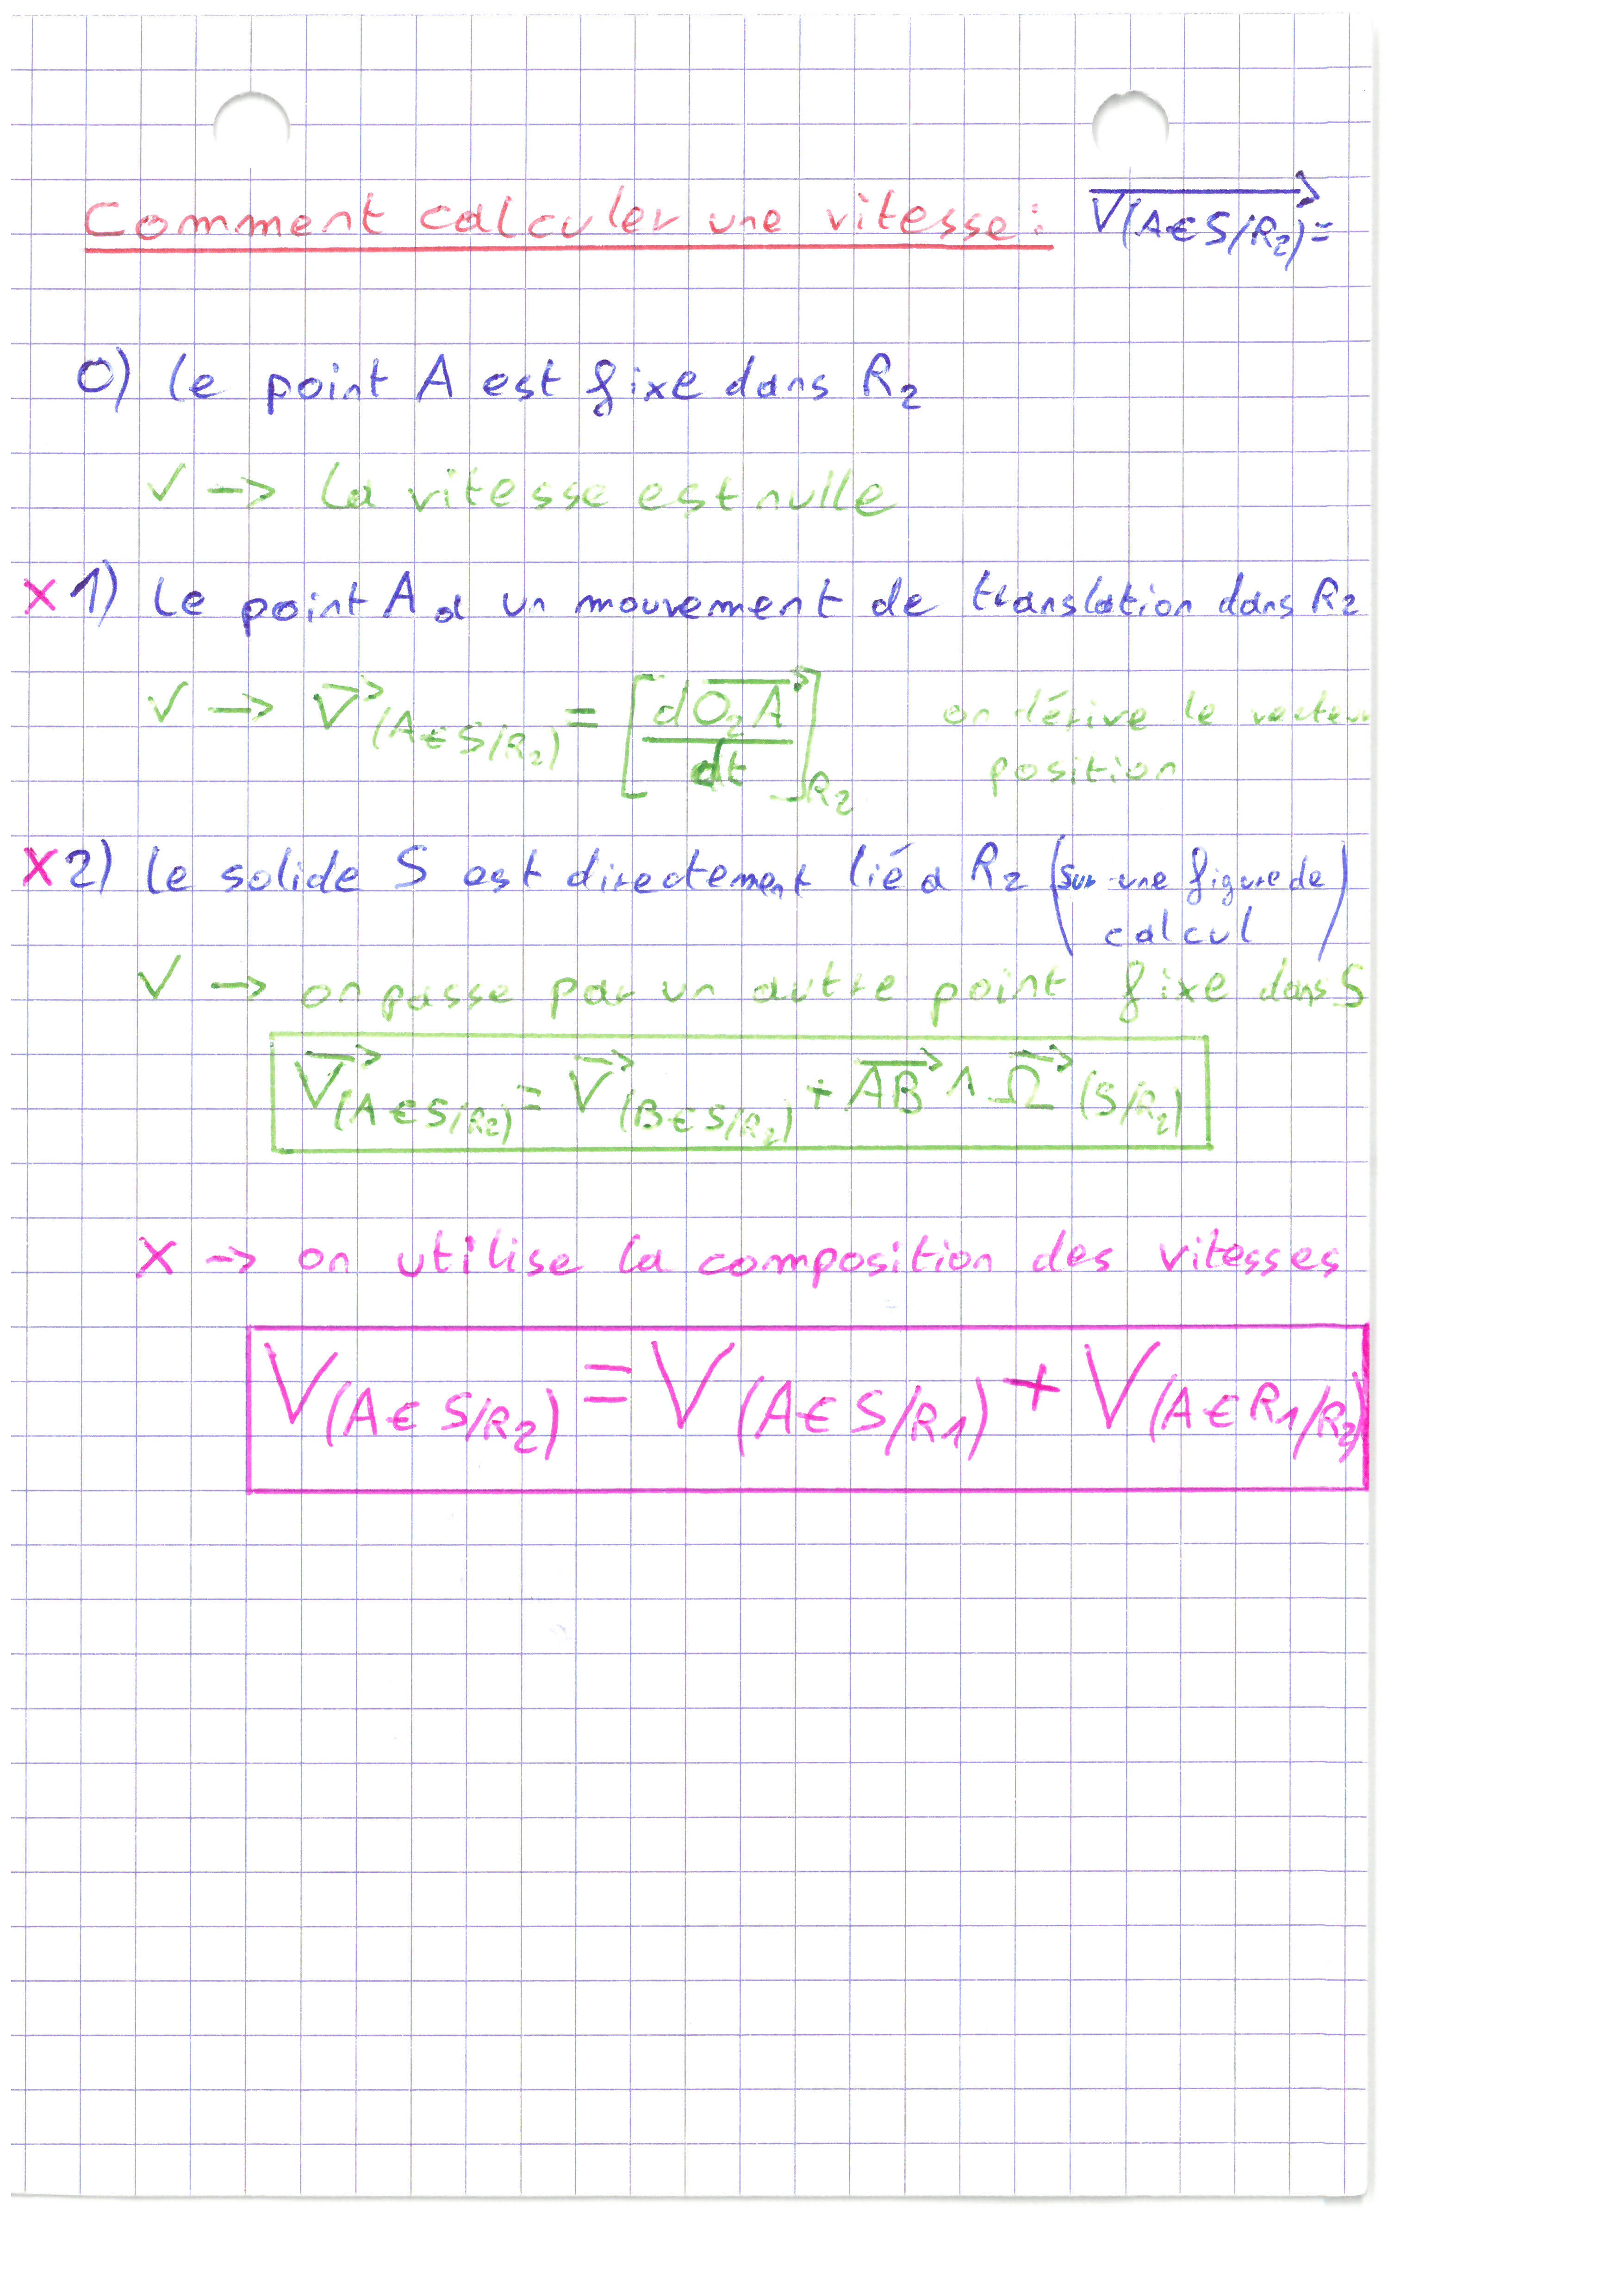 Comment calculer une vitesse : V(A∈S/R₂)=
0) le point A est fixe dans R₂
✓ → la vitesse est nulle
X 1) le point A a un mouvement de translation dans R₂
✓ → V⃗(A∈S/R₂) = [dO₂A⃗/dt]R₂ on dérive le vecteur
position
X 2) le solide S est directement lié a R₂ (sur une figure de
calcul)
✓ → on passe par un autre point fixe dans S
V⃗(A∈S/R₂) = V⃗(B∈S/R₂) + AB⃗ ∧ Ω⃗(S/R₂)
X → on utilise la composition des vitesses
V(A∈S/R₂) = V(A∈S/R1) + V(A∈R1/R₂)